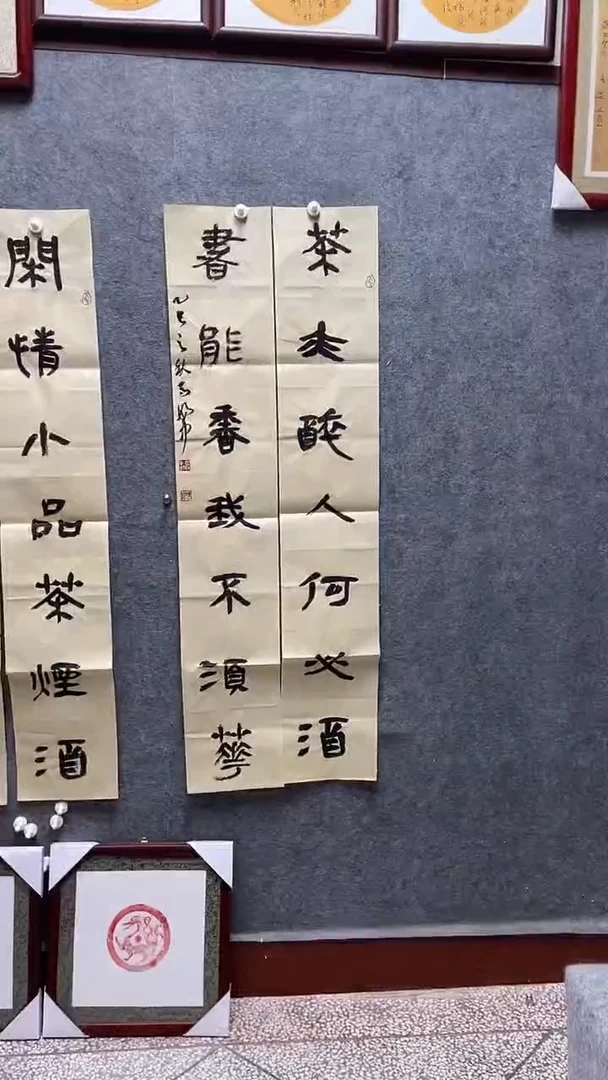 茶亦醉人何必酒
書能香我不須華
乙巳之秋
閑情小品茶煙酒